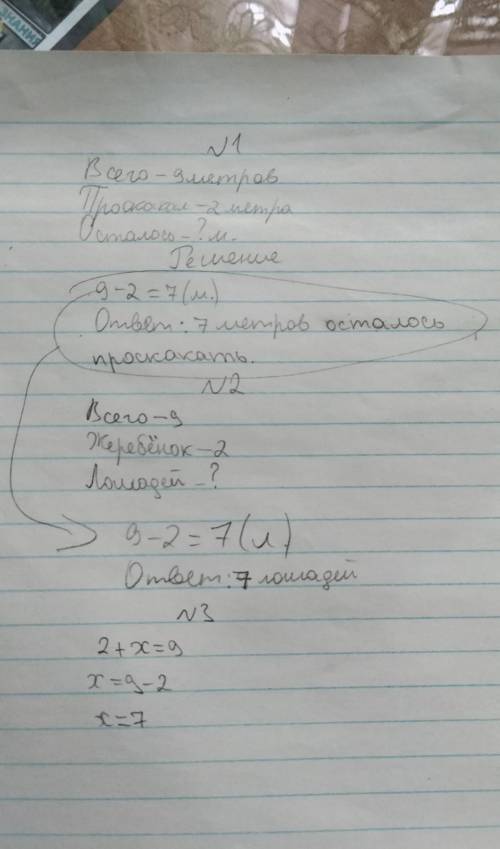 ЗНАНИЕ
№1
Всего-9метров
Проскакал-2 метра
Осталось-? м.
Решение
9-2=7(м.)
Ответ: 7 метров осталось
проскакать.
№2
Всего-9
Жеребёнок-2
Лошадей-?
9-2=7(л)
Ответ: 7 лошадей
№3
2+x=9
x=9-2
x=7